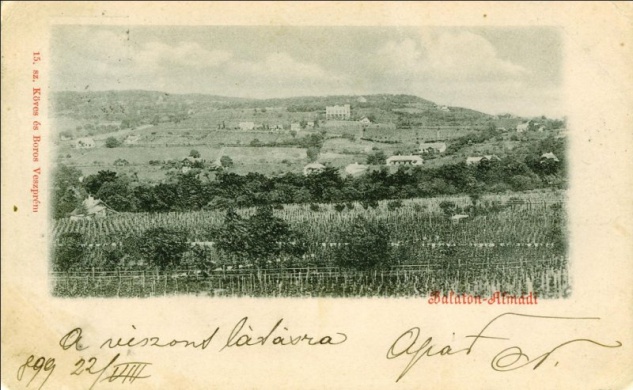 15. sz. Köves és Boros Veszprém
Balaton-Almádi
A viszont látásra
899 22/VIII